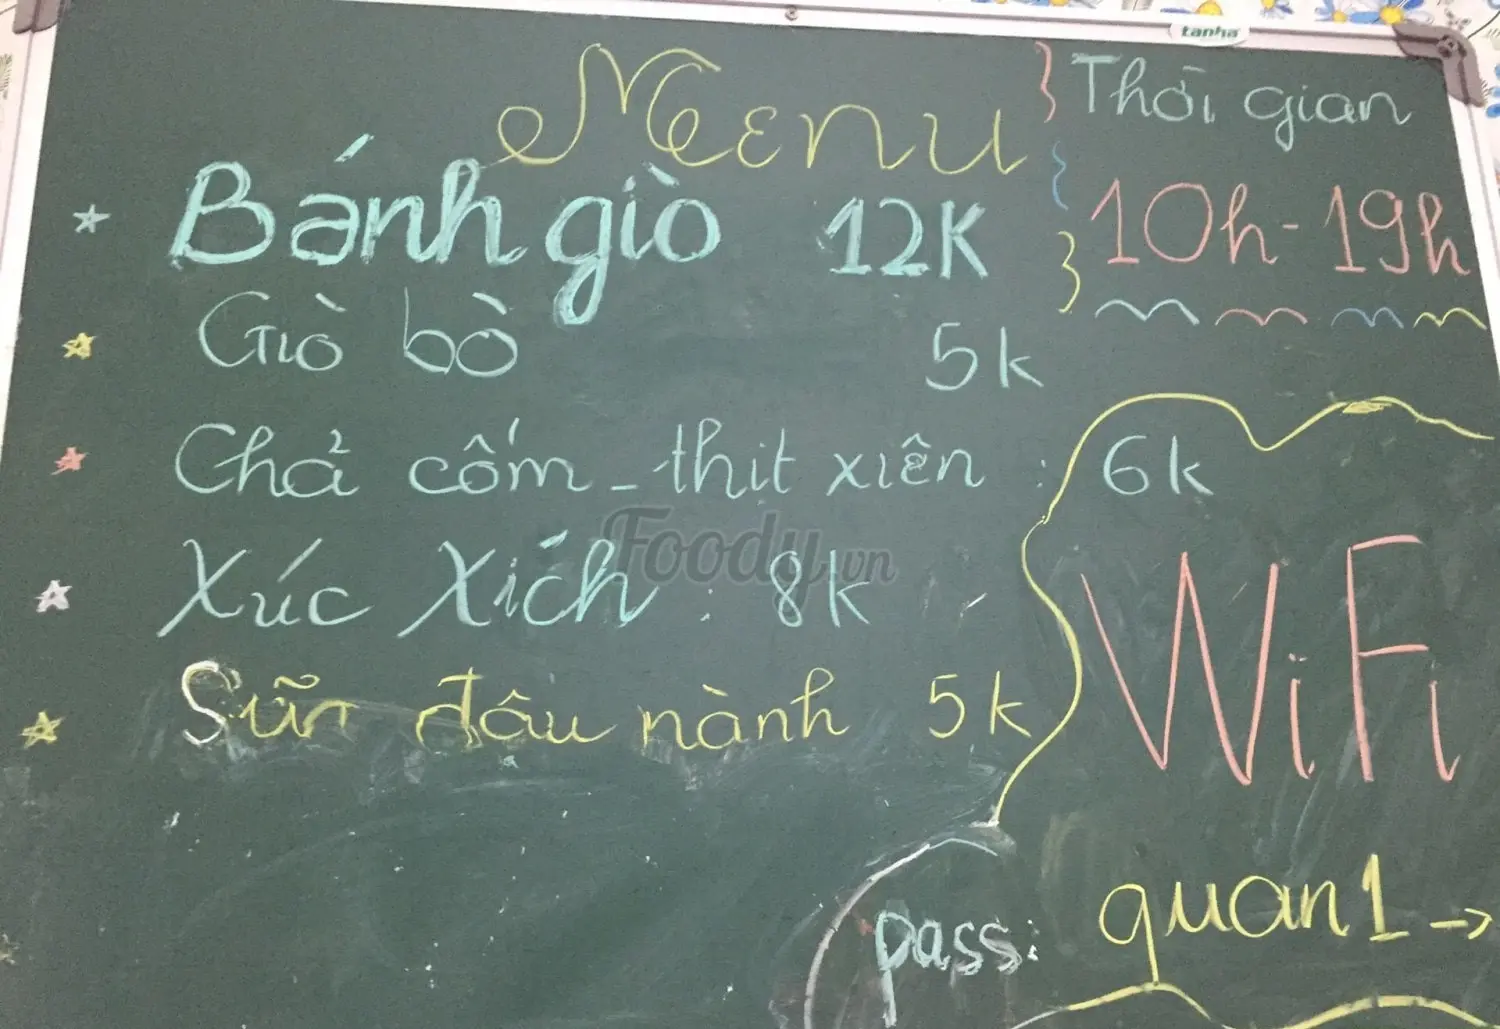 tanha
Menu
Bánh giò 12K
Giò bò 5k
Chả cốm - thịt xiên : 6k
Xúc Xích : 8k
Sữa đâu nành 5k
Thời gian
10h - 19h
WiFi
pass: quan1 →
Foody.vn